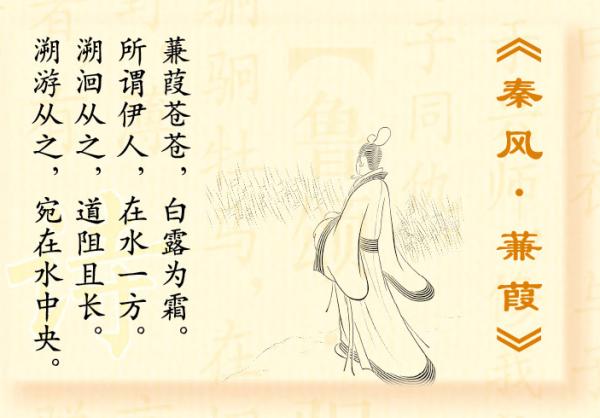 《秦风·蒹葭》
蒹葭苍苍，白露为霜。
所谓伊人，在水一方。
溯洄从之，道阻且长。
溯游从之，宛在水中央。
鲁颂
诗